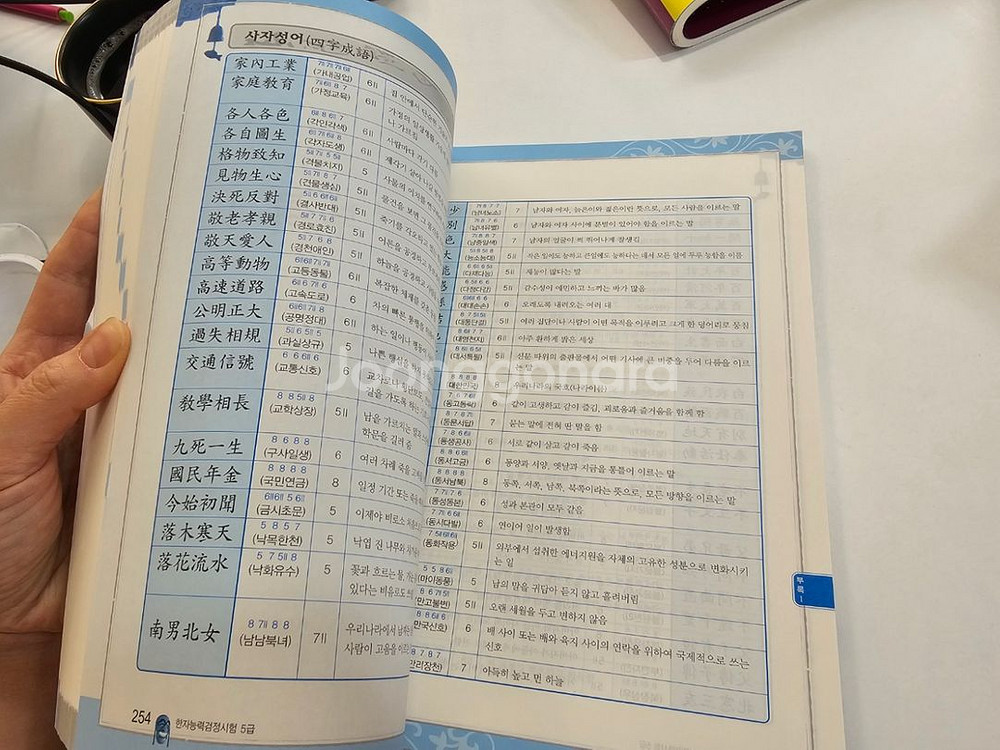 사자성어(四字成語)
家內工業 (가내공업) 6Ⅱ
家庭教育 (가정교육) 6Ⅱ 가정의 일상생활
나 가르침
各人各色 (각인각색) 6Ⅱ 사람마다 각기
各自圖生 (각자도생) 6Ⅱ 제각기 살아 나갈
格物致知 (격물치지) 5 사물의 이치를
見物生心 (견물생심) 5Ⅱ 물건을 보면
決死反對 (결사반대) 5Ⅱ 죽기를 각오하고
敬老孝親 (경로효친) 5Ⅱ 어른을 공경하고
敬天愛人 (경천애인) 5Ⅱ 하늘을 공경하고
高等動物 (고등동물) 6Ⅱ 복잡한 체계를
高速道路 (고속도로) 6 차의 빠른 통행을
公明正大 (공명정대) 6Ⅱ 하는 일이나
過失相規 (과실상규) 5 나쁜 행실을
交通信號 (교통신호) 6 교차로나
길을 가도록 하는
教學相長 (교학상장) 5Ⅱ 남을 가르치는
학문을 길러 줌
九死一生 (구사일생) 6 여러 차례 죽을
國民年金 (국민연금) 8 일정 기간 또는
今始初聞 (금시초문) 5 이제야 비로소
落木寒天 (낙목한천) 5 낙엽 진 나무와
落花流水 (낙화유수) 5 꽃과 흐르는 물,
있다는 비유로도
南男北女 (남남북녀) 7Ⅱ 우리나라에서
사람이 고움을
254 한자능력검정시험 5급
(남녀노소) 7 남자와 여자, 늙은이와 젊은이란 뜻으로, 모든 사람을 이르는 말
(남녀유별) 6 남자와 여자 사이에 분별이 있어야 함을 이르는 말
(남중일색) 7 남자의 얼굴이 썩 뛰어나게 잘생김
(능소능대) 5Ⅱ 작은 일에도 능하고 큰일에도 능하다는 데서 모든 일에 두루 능함을 이름
(다재다능) 5Ⅱ 재능이 많다는 말
(다정다감) 5Ⅱ 감수성이 예민하고 느끼는 바가 많음
(대대손손) 6 오래도록 내려오는 여러 대
(대동단결) 5Ⅱ 여러 집단이나 사람이 어떤 목적을 이루려고 크게 한 덩어리로 뭉침
(대명천지) 6Ⅱ 아주 환하게 밝은 세상
(대서특필) 5Ⅱ 신문 따위의 출판물에서 어떤 기사에 큰 비중을 두어 다룸을 이르
는 말
(대한민국) 8 우리나라의 국호(나라이름)
(동고동락) 6 같이 고생하고 같이 즐김, 괴로움과 즐거움을 함께 함
(동문서답) 7 묻는 말에 전혀 딴 말을 함
(동생공사) 6 서로 같이 살고 같이 죽음
(동서고금) 6 동양과 서양, 옛날과 지금을 통틀어 이르는 말
(동서남북) 8 동쪽, 서쪽, 남쪽, 북쪽이라는 뜻으로, 모든 방향을 이르는 말
(동성동본) 6 성과 본관이 모두 같음
(동시다발) 6 연이어 일이 발생함
(동화작용) 5Ⅱ 외부에서 섭취한 에너지원을 자체의 고유한 성분으로 변화시키
는 일
(마이동풍) 5 남의 말을 귀담아 듣지 않고 흘려버림
(만고불변) 5Ⅱ 오랜 세월을 두고 변하지 않음
만국신호) 6 배 사이 또는 배와 육지 사이의 연락을 위하여 국제적으로 쓰는
신호
만리장천) 7 아득히 높고 먼 하늘
부록 1
Joonggonara